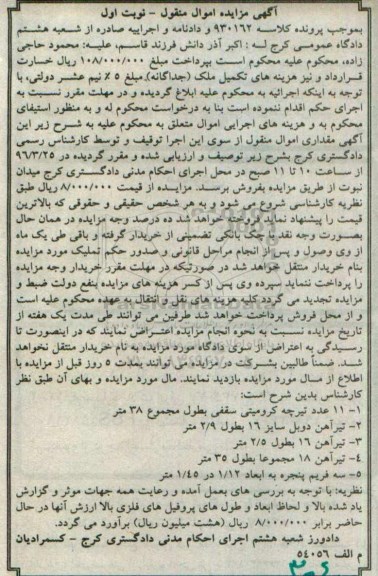 آگهی مزایده اموال منقول - نوبت اول
بموجب پرونده کلاسه ۹۳۰۱۶۲ و دادنامه و اجراییه صادره از شعبه هشتم
دادگاه عمومی کرج له : اکبر آذر دانش فرزند قاسم، علیه: محمود حاجی
زاده، محکوم علیه محکوم است بپرداخت مبلغ ۱۰۸/۰۰۰/۰۰۰ ریال خسارت
قرارداد و نیز هزینه های تکمیل ملک (جداگانه)، مبلغ ۵٪ نیم عشر دولتی، با
توجه به اینکه اجرائیه به محکوم علیه ابلاغ گردیده و در مهلت مقرر نسبت به
اجرای حکم اقدام ننموده است بنا به درخواست محکوم له و به منظور استیفای
محکوم به و هزینه های اجرایی اموال متعلق به محکوم علیه به شرح زیر این
آگهی مقداری اموال منقول از سوی این اجرا توقیف و توسط کارشناس رسمی
دادگستری کرج بشرح زیر توصیف و ارزیابی شده و مقرر گردیده در ۹۶/۳/۲۵
از ساعت ۱۰ تا ۱۱ صبح در محل اجرای احکام مدنی دادگستری کرج میدان
نبوت از طریق مزایده بفروش برسد. مزایده از قیمت ۸/۰۰۰/۰۰۰ ریال طبق
نظریه کارشناسی شروع می شود و به هر شخص حقیقی و حقوقی که بالاترین
قیمت را پیشنهاد نماید فروخته خواهد شد ده درصد وجه مزایده در همان حال
بصورت وجه نقد یا چک بانکی تضمینی از خریدار گرفته و باقی طی یک ماه
از وی وصول و پس از انجام مراحل قانونی و صدور حکم تملیک مورد مزایده
بنام خریدار منتقل خواهد شد در صورتیکه در مهلت مقرر خریدار وجه مزایده
را پرداخت ننماید سپرده وی پس از کسر هزینه های مزایده بنفع دولت ضبط و
مزایده تجدید می گردد کلیه هزینه های نقل و انتقال به عهده محکوم علیه است
و از محل فروش پرداخت خواهد شد طرفین می توانند طی مدت یک هفته از
تاریخ مزایده نسبت به نحوه انجام مزایده اعتراض نمایند که در اینصورت تا
رسیدگی به اعتراض از سوی دادگاه مورد مزایده به نام خریدار منتقل نخواهد
شد. ضمناً طالبین بشرکت در مزایده می توانند بمدت ۵ روز قبل از مزایده با
اطلاع از مـال مورد مزایده بازدید نمایند. مال مورد مزایده و بهای آن طبق نظر
کارشناس بدین شرح است:
۱- ۱۱ عدد تیرچه کرومیتی سقفی بطول مجموع ۳۸ متر
۲- تیرآهن دوبل سایز ۱۶ بطول ۲/۹ متر
۳- تیرآهن ۱۶ بطول ۲/۵ متر
۴- تیرآهن ۱۸ مجموعا بطول ۳۵ متر
۵- سه فریم پنجره به ابعاد ۱/۱۲ در ۱/۴۵ متر
نظریه: با توجه به بررسی های بعمل آمده و رعایت همه جهات موثر و گزارش
یاد شده بالا و لحاظ ابعاد و طول های پروفیل های فلزی بالا ارزش آنها در حال
حاضر برابر ۸/۰۰۰/۰۰۰ ریال (هشت میلیون ریال) برآورد می گردد.
دادورز شعبه هشتم اجرای احکام مدنی دادگستری کرج - کسمرادیان
م الف ۵۴۰۵۶